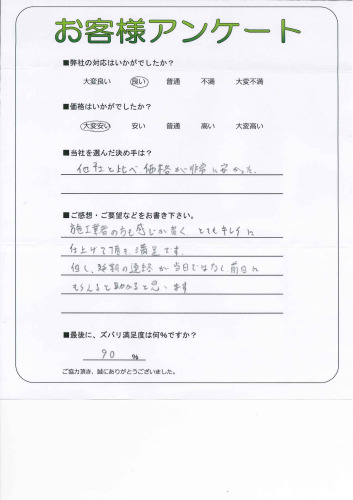 お客様アンケート
■弊社の対応はいかがでしたか？
大変良い 良い 普通 不満 大変不満
■価格はいかがでしたか？
大変安い 安い 普通 高い 大変高い
■当社を選んだ決め手は？
他社と比べ価格が非常に安かった.
■ご感想・ご要望などをお書き下さい。
施工業者の方も感じが良く とてもキレイに
仕上げて頂き満足です.
但し、延期の連絡が当日ではなく前日に
もらえると助かると思います
■最後に、ズバリ満足度は何%ですか？
90 %
ご協力頂き、誠にありがとうございました。